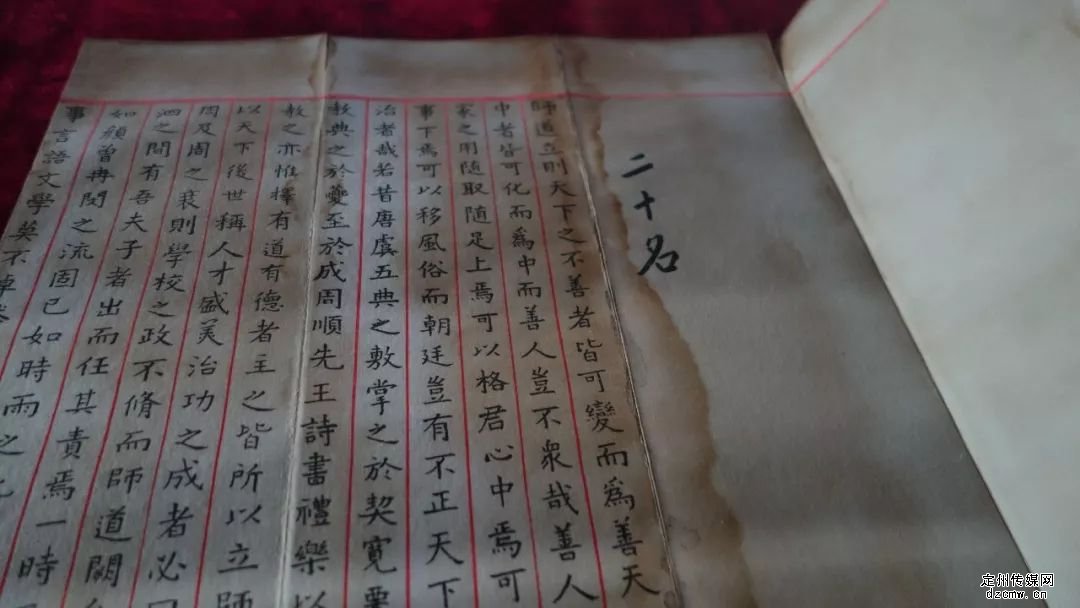 二十名
師道立則天下之不善者皆可變而爲善天
中者皆可化而爲中而善人豈不衆哉善人
家之用隨取隨足上焉可以格君心中焉可
事下焉可以移風俗而朝廷豈有不正天下
治者哉若昔唐虞五典之敷掌之於契寬
教典之於夔至於成周順先王詩書禮樂以
教之亦惟擇有道有德者主之皆所以立師
以天下後世稱人才盛美治功之成者必
周及周之衰則學校之政不脩而師道闕
泗之間有吾夫子者出而任其責焉一時
如顏曾冉閔之流固已如時雨之
事言語文學莫不
定州传媒网
dzcmw.cn